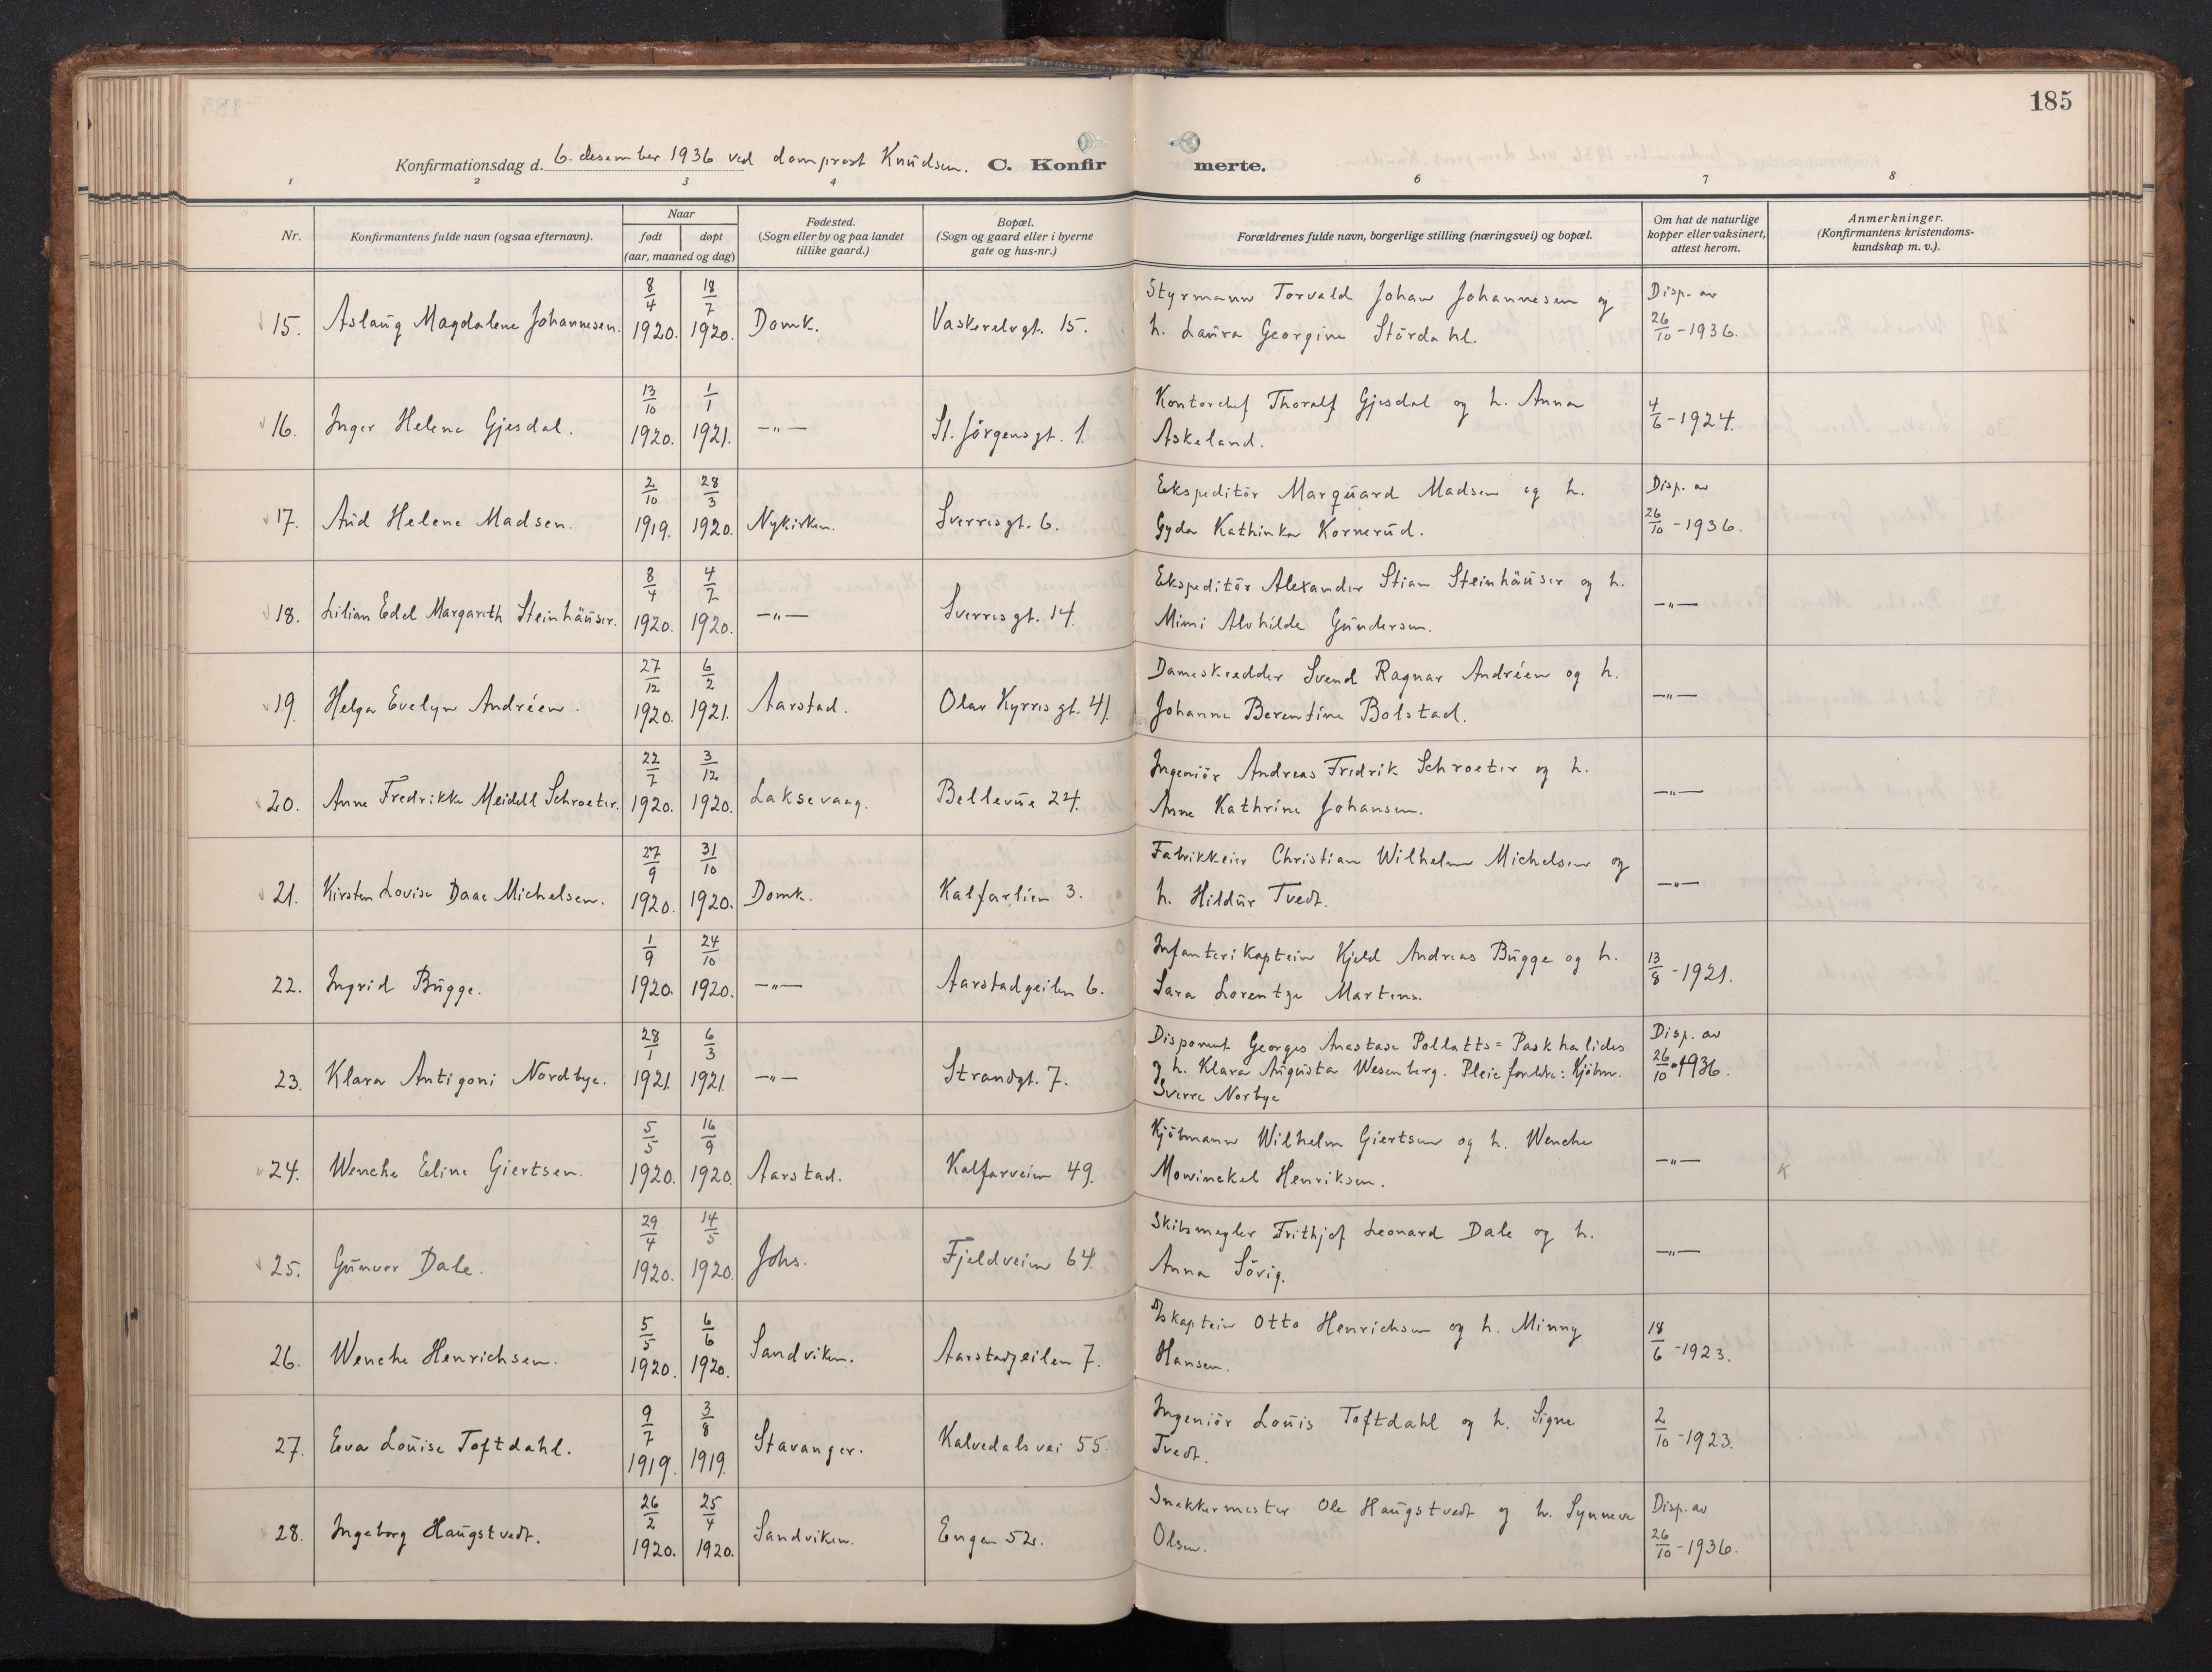 185
Konfirmationsdag d. 6. desember 1936 ved domprost Knudsen. C. Konfirmerte.
1 2 3 4 6 7 8
Nr.
Konfirmantens fulde navn (ogsaa efternavn).
Naar
født døpt
(aar, maaned og dag)
Fødested.
(Sogn eller by og paa landet
tillike gaard.)
Bopæl.
(Sogn og gaard eller i byerne
gate og hus-nr.)
Forældrenes fulde navn, borgerlige stilling (næringsvei) og bopæl.
Om hat de naturlige
kopper eller vaksinert,
attest herom.
Anmerkninger.
(Konfirmantens kristendoms-
kundskap m. v.).
15. Aslaug Magdalene Johannesen. 8/4 1920. 18/7 1920. Domk. Vaskerelvgt. 15.
Styrmann Torvald Johan Johannesen og
h. Laura Georgine Stördahl.
Disp. av
26/10 - 1936.
16. Inger Helene Gjesdal. 13/10 1920. 1/1 1921. —"— St. Jörgensgt. 1.
Kontorchef Thoralf Gjesdal og h. Anna
Askeland.
4/6 - 1924.
17. Aud Helene Madsen. 2/10 1919. 28/3 1920. Nykirken. Sverresgt. 6.
Ekspeditör Marquard Madsen og h.
Gyda Kathinka Kornerud.
Disp. av
26/10 - 1936.
18. Lilian Edel Margareth Steinhäuser. 8/4 1920. 4/7 1920. —"— Sverresgt. 14.
Ekspeditör Alexander Stian Steinhäuser og h.
Mimi Alvhilde Gundersen.
—"—
19. Helga Evelyn Andréen. 27/12 1920. 6/2 1921. Aarstad. Olav Kyrres gt. 41.
Dameskredder Svend Ragnar Andréen og h.
Johanne Berentine Bolstad.
—"—
20. Anne Fredrikke Meidell Schroeter. 22/7 1920. 3/12 1920. Laksevaag. Bellevue 24.
Ingeniör Andreas Fredrik Schroeter og h.
Anne Kathrine Johansen.
—"—
21. Kirsten Lovise Daae Michelsen. 27/9 1920. 31/10 1920. Domk. Kalfarlien 3.
Fabrikkeier Christian Wilhelm Michelsen og
h. Hildur Tvedt.
—"—
22. Ingrid Bugge. 1/9 1920. 24/10 1920. —"— Aarstadgeilen 6.
Infanterikaptein Kjeld Andreas Bugge og h.
Sara Lorentze Martens.
13/8 - 1921.
23. Klara Antigoni Nordbye. 28/1 1921. 6/3 1921. —"— Strandgt. 7.
Disponent Georges Anastase Pollatts= Paskhalides
og h. Klara Augusta Wesenberg. Pleieforeldre: Kjöbm.
Sverre Norbye
Disp. av
26/10 - 1936.
24. Wenche Eline Giertsen. 5/5 1920. 16/9 1920. Aarstad. Kalfarveien 49.
Kjöbmann Wilhelm Giertsen og h. Wenche
Mowinckel Henriksen.
—"— K
25. Gunvor Dale. 29/4 1920. 14/5 1920. Johs. Fjeldveien 64.
Skibsmegler Frithjof Leonard Dale og h.
Anna Sörig.
—"—
26. Wenche Henrichsen. 5/5 1920. 6/6 1920. Sandviken. Aarstadgeilen 7.
D/skaptein Otto Henrichsen og h. Minny
Hansen.
18/6 - 1923.
27. Eva Louise Toftdahl. 9/7 1919. 3/8 1919. Stavanger. Kalvedalsvei 55.
Ingeniör Louis Toftdahl og h. Signe
Tvedt.
2/10 - 1923.
28. Ingeborg Haugstvedt. 26/2 1920. 25/4 1920. Sandviken. Engen 52.
Snekkermester Ole Haugstvedt og h. Synneve
Olsen.
Disp. av
26/10 - 1936.